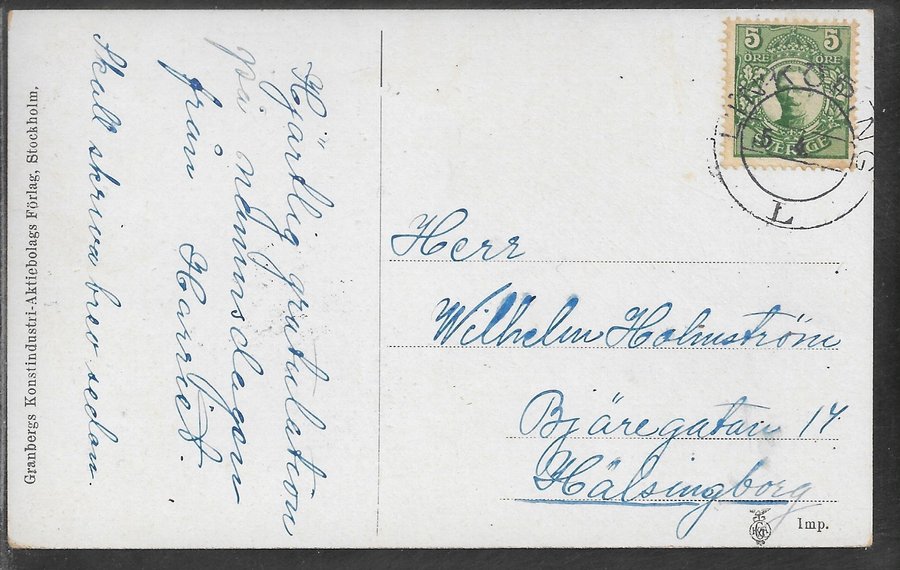 Hjärtlig gratulation
på namnsdagen
från Harriet.
Skall skriva brev sedan.
Granbergs Konstindustri-Aktiebolags Förlag, Stockholm.
5 5
ÖRE ÖRE
SVERIGE
LINKÖPING
L
Herr
Wilhelm Holmström
Bjäregatan 14
Hälsingborg
Imp.